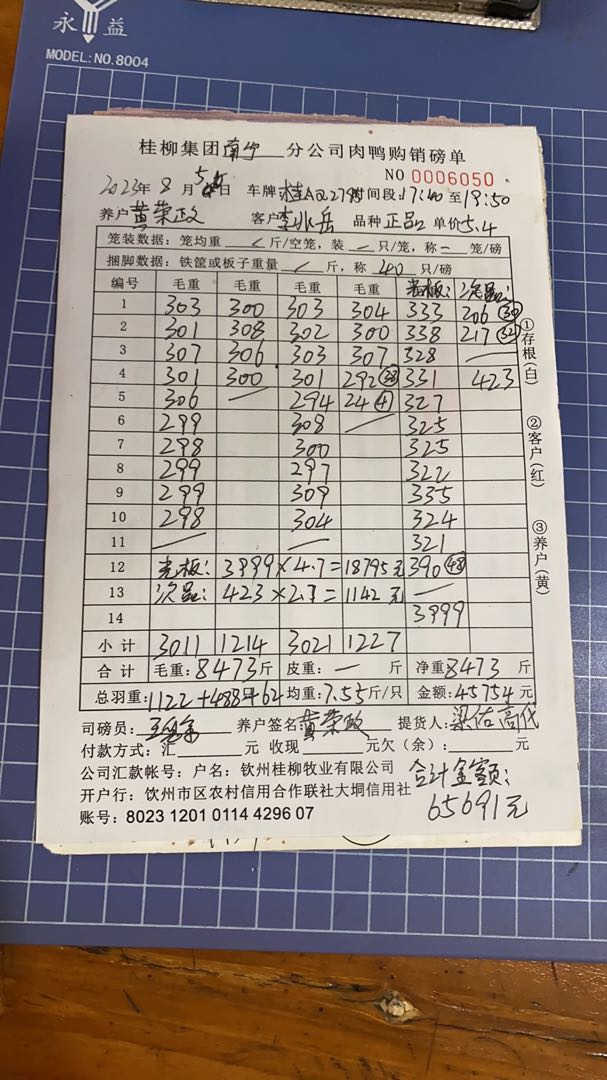 永益
MODEL:NO.8004
桂柳集团南宁分公司肉鸭购销磅单
NO 0006050
2023年 8月 5日 车牌 时间段:17:40至19:50
养户 黄荣政 客户 李兆岳 品种 正品 单价 5.4
笼装数据：笼均重 / 斤/空笼，装 / 只/笼，称 / 笼/磅
捆脚数据：铁筐或板子重量 / 斤，称 40 只/磅
编号 毛重 毛重 毛重 毛重 光板: 次品:
1 303 300 303 304 333 206 30
2 301 308 302 300 338 217 32
3 307 306 303 307 328 —
4 301 300 301 292 38 331 423
5 306 — 294 24 4 327
6 299 308 — 325
7 298 300 325
8 299 297 322
9 299 309 335
10 298 304 324
11 — — 321
12 光板: 3999×4.7=18795元 390 48
13 次品: 423×2.7=1142元 —
14 3999
小计 3011 1214 3021 1227
合计 毛重:8473斤 皮重: — 斤 净重:8473斤
总羽重:1122+488+62 均重:7.55斤/只 金额:45754元
司磅员: 养户签名 黄荣政 提货人: 梁佑高代
付款方式：汇 元 收现 元欠（余）： 元
公司汇款帐号：户名：钦州桂柳牧业有限公司
合计金额:
开户行：钦州市区农村信用合作联社大垌信用社
65691元
账号：8023 1201 0114 4296 07
①存根(白)
②客户(红)
③养户(黄)